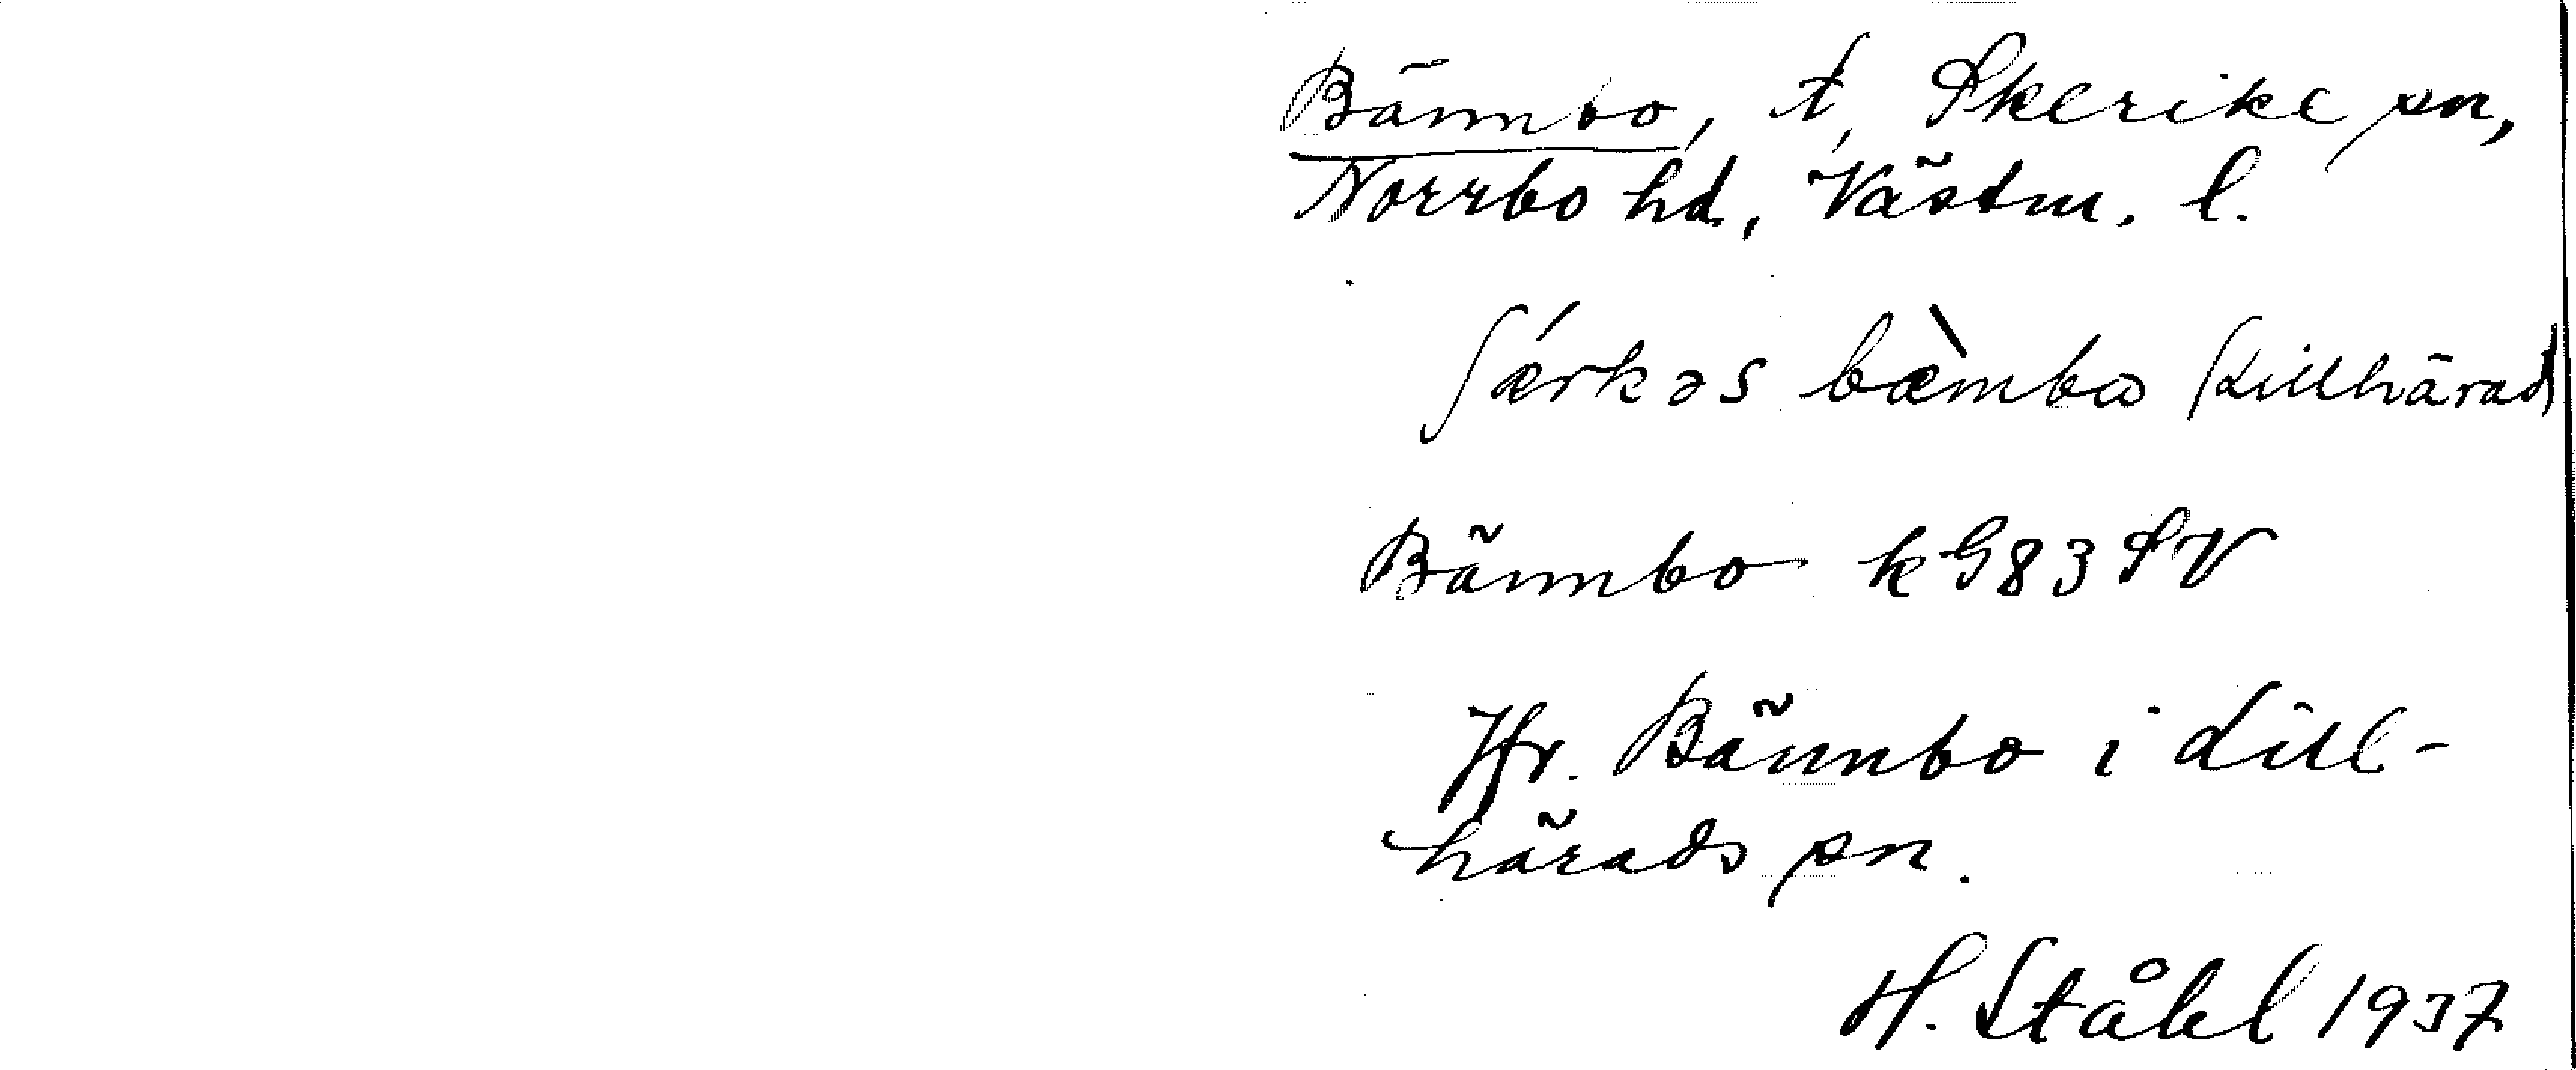 Bännbo, t, Skerike sn,
Norrbo hd, Västm. l.
ʃǽrkəs bæ̀mbω (Lillhärad)
Bännbo kG83SV
Jfr. Bännbo i Lill-
härads sn.
H. Ståhl 1937